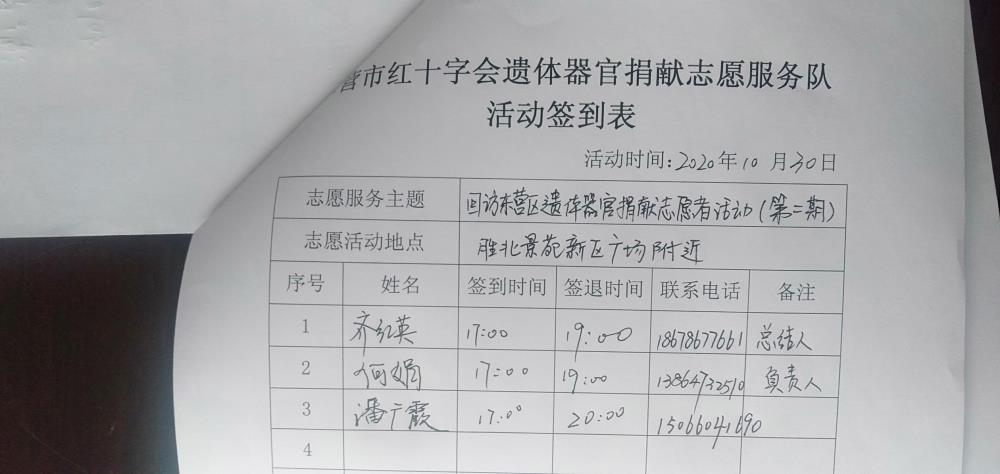 营市红十字会遗体器官捐献志愿服务队
活动签到表
活动时间:2020年10月30日
志愿服务主题 回访东营区遗体器官捐献志愿者活动(第二期)
志愿活动地点 胜北景苑新区广场附近
序号 姓名 签到时间 签退时间 联系电话 备注
1 齐红英 17:00 19:00 18678677661 总结人
2 何娟 17:00 19:00 13864732510 负责人
3 潘广霞 17:00 20:00 15066041690
4